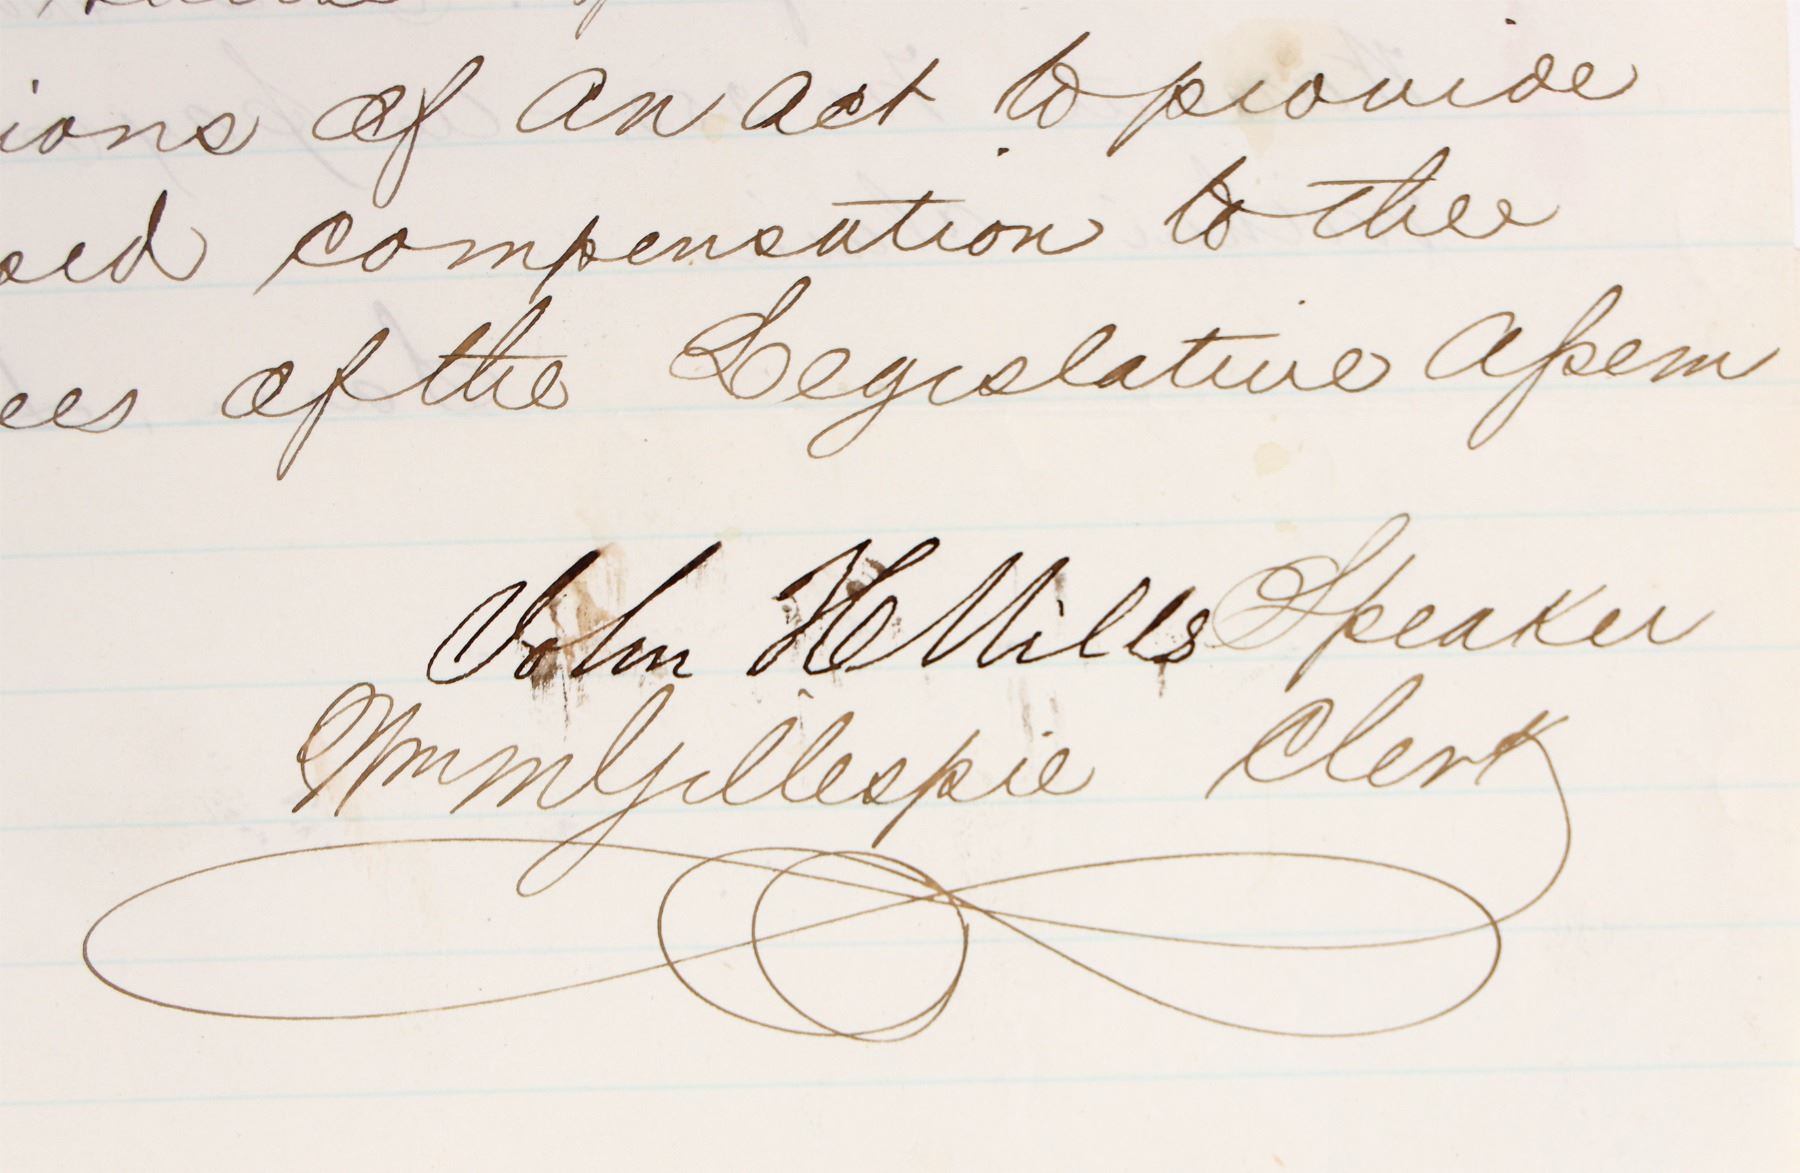 ions of an act to provide
compensation to thee
ees of the Legislative Assem
John H Mills Speaker
Wm M Gillespie Clerk